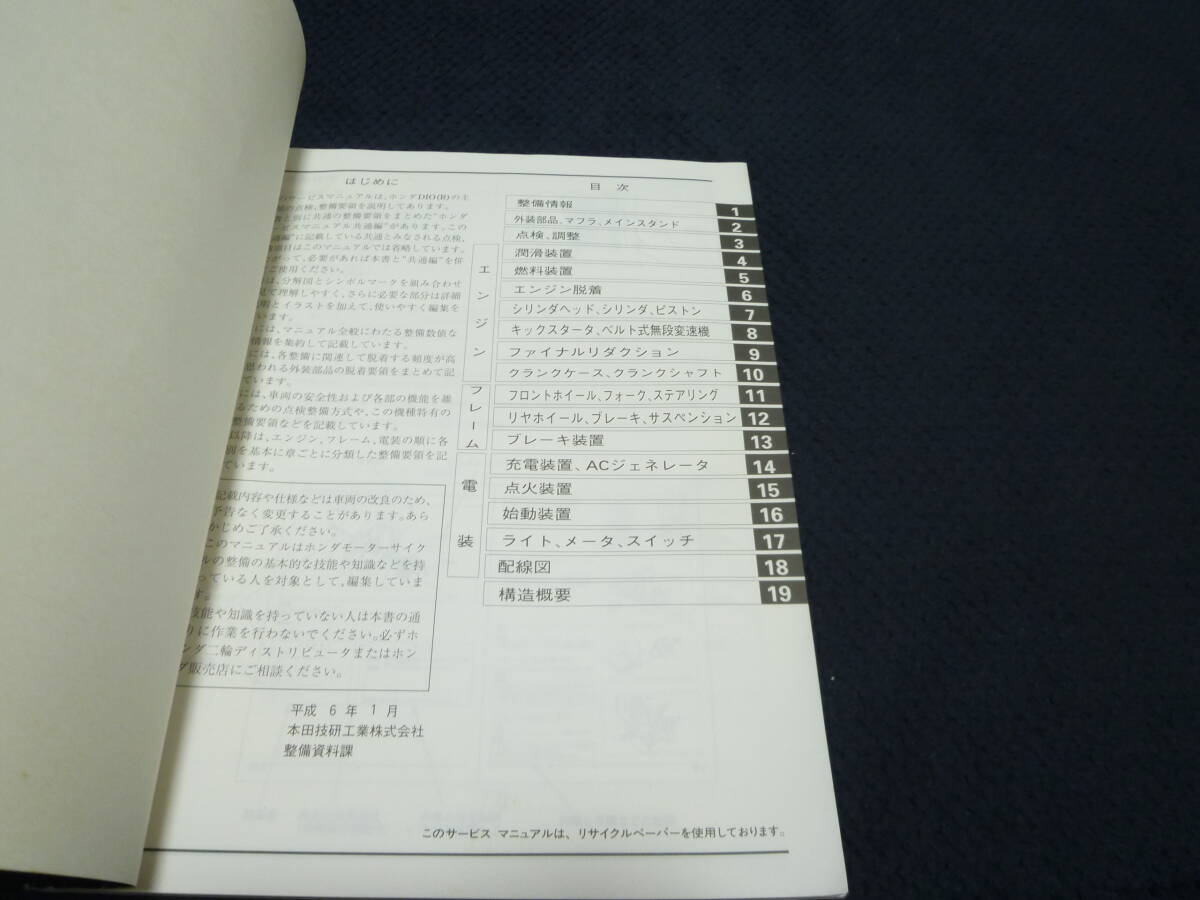 はじめに
のサービスマニュアルは、ホンダDIO(II)の主
の点検、整備要領を説明してあります。
書と別に共通の整備要領をまとめた"ホンダ
ビスマニュアル共通編"があります。この
通編"に記載している共通とみなされる点検、
項目はこのマニュアルでは省略しています。
がって、必要があれば本書と"共通編"を併
ご使用ください。
は、分解図とシンボルマークを組み合わせ
見て理解しやすく、さらに必要な部分は詳細
明とイラストを加えて、使いやすく編集を
います。
には、マニュアル全般にわたる整備数値な
情報を集約して記載しています。
には、各整備に関連して脱着する頻度が高
思われる外装部品の脱着要領をまとめて記
ています。
には、車両の安全性および各部の機能を維
るための点検整備方式や、この機種特有の
整備要領などを記載しています。
以降は、エンジン、フレーム、電装の順に各
別を基本に章ごとに分類した整備要領を記
ています。
記載内容や仕様などは車両の改良のため、
予告なく変更することがあります。あら
かじめご了承ください。
このマニュアルはホンダモーターサイク
ルの整備の基本的な技能や知識などを持
っている人を対象として、編集していま
す。
技能や知識を持っていない人は本書の通
りに作業を行わないでください。必ずホ
ンダ二輪ディストリビュータまたはホン
ダ販売店にご相談ください。
平成 6 年 1 月
本田技研工業株式会社
整備資料課
目 次
整備情報 1
外装部品、マフラ、メインスタンド 2
点検、調整 3
エンジン
潤滑装置 4
燃料装置 5
エンジン脱着 6
シリンダヘッド、シリンダ、ピストン 7
キックスタータ、ベルト式無段変速機 8
ファイナルリダクション 9
クランクケース、クランクシャフト 10
フレーム
フロントホイール、フォーク、ステアリング 11
リヤホイール、ブレーキ、サスペンション 12
ブレーキ装置 13
電装
充電装置、ACジェネレータ 14
点火装置 15
始動装置 16
ライト、メータ、スイッチ 17
配線図 18
構造概要 19
このサービス マニュアルは、リサイクルペーパーを使用しております。